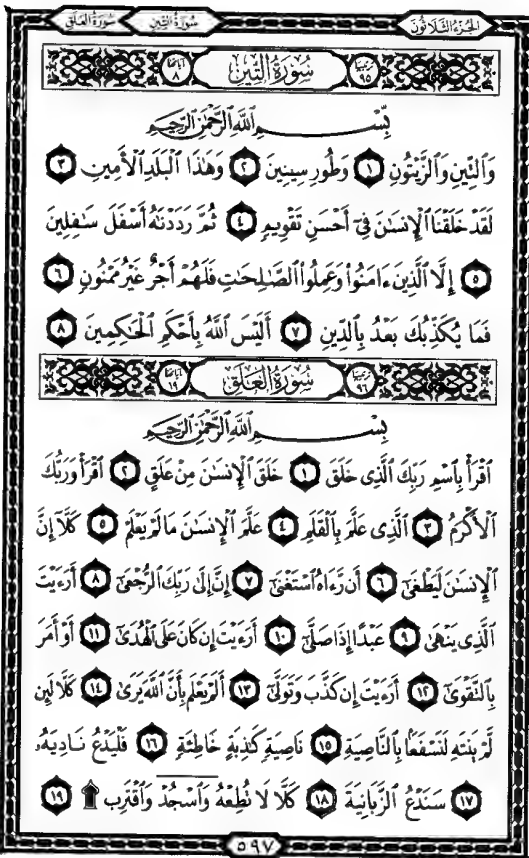 الجزء الثلاثون سورة التين سورة العلق
ترتيبها ٩٥ سُورَةُ التِّينِ آياتها ٨
بِسْمِ ٱللَّهِ ٱلرَّحْمَٰنِ ٱلرَّحِيمِ
وَٱلتِّينِ وَٱلزَّيْتُونِ ١ وَطُورِ سِينِينَ ٢ وَهَٰذَا ٱلْبَلَدِ ٱلْأَمِينِ ٣
لَقَدْ خَلَقْنَا ٱلْإِنسَٰنَ فِىٓ أَحْسَنِ تَقْوِيمٍ ٤ ثُمَّ رَدَدْنَٰهُ أَسْفَلَ سَٰفِلِينَ
٥ إِلَّا ٱلَّذِينَ ءَامَنُوا۟ وَعَمِلُوا۟ ٱلصَّٰلِحَٰتِ فَلَهُمْ أَجْرٌ غَيْرُ مَمْنُونٍ ٦
فَمَا يُكَذِّبُكَ بَعْدُ بِٱلدِّينِ ٧ أَلَيْسَ ٱللَّهُ بِأَحْكَمِ ٱلْحَٰكِمِينَ ٨
ترتيبها ٩٦ سُورَةُ العَلَقِ آياتها ١٩
بِسْمِ ٱللَّهِ ٱلرَّحْمَٰنِ ٱلرَّحِيمِ
ٱقْرَأْ بِٱسْمِ رَبِّكَ ٱلَّذِى خَلَقَ ١ خَلَقَ ٱلْإِنسَٰنَ مِنْ عَلَقٍ ٢ ٱقْرَأْ وَرَبُّكَ
ٱلْأَكْرَمُ ٣ ٱلَّذِى عَلَّمَ بِٱلْقَلَمِ ٤ عَلَّمَ ٱلْإِنسَٰنَ مَا لَمْ يَعْلَمْ ٥ كَلَّآ إِنَّ
ٱلْإِنسَٰنَ لَيَطْغَىٰٓ ٦ أَن رَّءَاهُ ٱسْتَغْنَىٰٓ ٧ إِنَّ إِلَىٰ رَبِّكَ ٱلرُّجْعَىٰٓ ٨ أَرَءَيْتَ
ٱلَّذِى يَنْهَىٰ ٩ عَبْدًا إِذَا صَلَّىٰٓ ١٠ أَرَءَيْتَ إِن كَانَ عَلَى ٱلْهُدَىٰٓ ١١ أَوْ أَمَرَ
بِٱلتَّقْوَىٰٓ ١٢ أَرَءَيْتَ إِن كَذَّبَ وَتَوَلَّىٰٓ ١٣ أَلَمْ يَعْلَم بِأَنَّ ٱللَّهَ يَرَىٰ ١٤ كَلَّا لَئِن
لَّمْ يَنتَهِ لَنَسْفَعًۢا بِٱلنَّاصِيَةِ ١٥ نَاصِيَةٍ كَٰذِبَةٍ خَاطِئَةٍ ١٦ فَلْيَدْعُ نَادِيَهُۥ
١٧ سَنَدْعُ ٱلزَّبَانِيَةَ ١٨ كَلَّا لَا تُطِعْهُ وَٱسْجُدْ وَٱقْتَرِب ۩ ١٩
٥٩٧